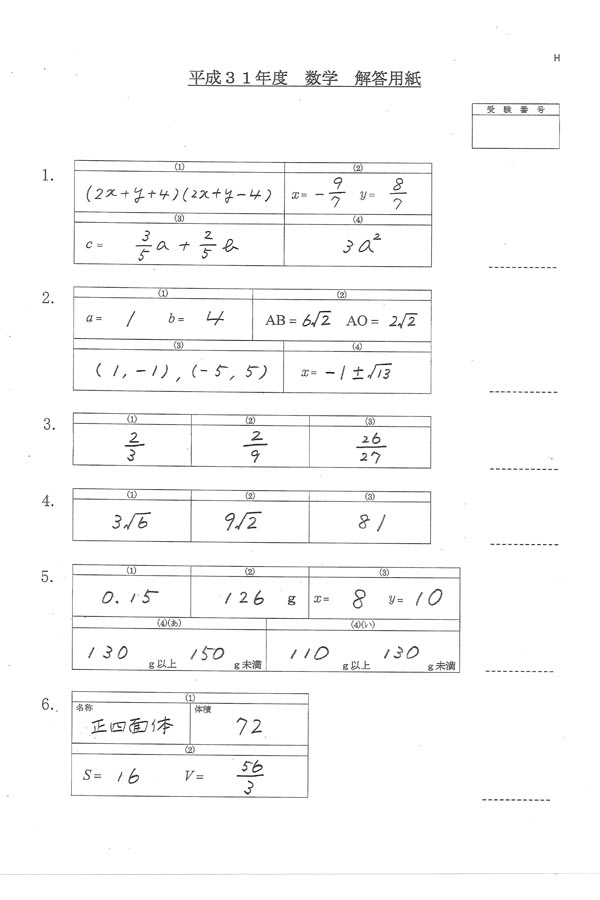 H
平成31年度 数学 解答用紙
受験番号
1.
(1) (2)
(2x+y+4)(2x+y-4) x= -9/7 y= 8/7
(3) (4)
c= 3/5 a + 2/5 b 3a²
2.
(1) (2)
a= 1 b= 4 AB=6√2 AO= 2√2
(3) (4)
(1,-1),(-5,5) x= -1±√13
3.
(1) (2) (3)
2/3 2/9 26/27
4.
(1) (2) (3)
3√6 9√2 81
5.
(1) (2) (3)
0.15 126 g x= 8 y= 10
(4)(あ) (4)(い)
130 g以上 150 g未満 110 g以上 130 g未満
6.
(1)
名称 体積
正四面体 72
(2)
S= 16 V= 56/3